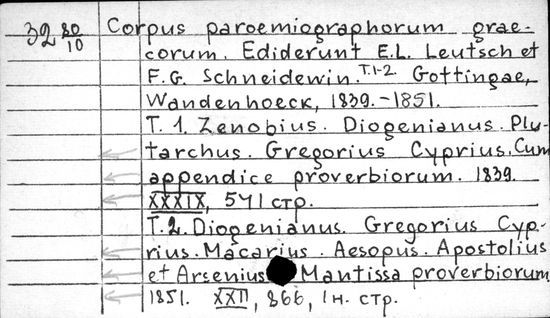 39 80/10 Corpus paroemiographorum grae-
corum. Ediderunt E.L. Leutsch et
F.G. Schneidewin. T.1-2 Gottingae,
Wandenhoeck, 1839.-1851.
T. 1. Zenobius. Diogenianus. Plu-
tarchus. Gregorius Cyprius. Cum
appendice proverbiorum. 1839.
XXXIX, 541 стр.
T.2. Diogenianus. Gregorius Cyp-
rius. Macarius. Aesopus. Apostolius
et Arsenius Mantissa proverbiorum
1851. XXII, 866, 1н. стр.